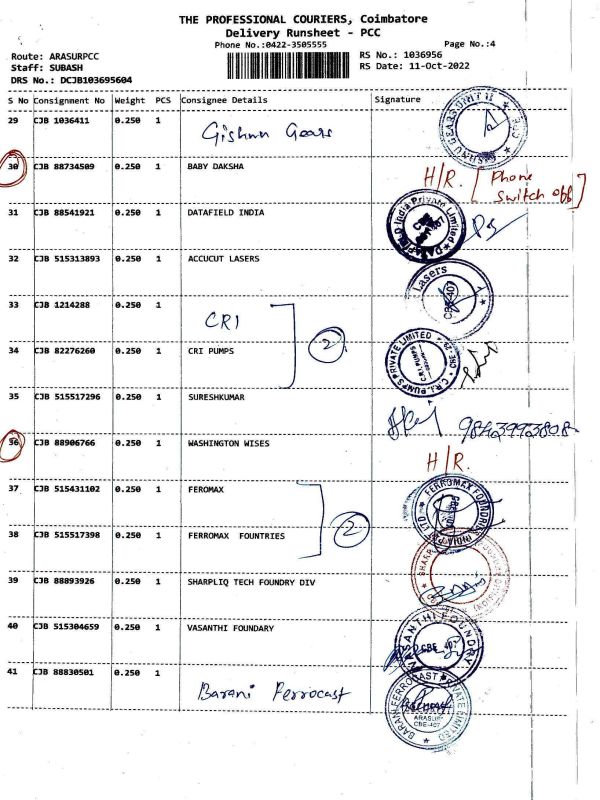 THE PROFESSIONAL COURIERS, Coimbatore
Delivery Runsheet - PCC
Phone No.:0422-3505555
Page No.:4
Route: ARASURPCC
Staff: SUBASH
DRS No.: DCJB103695604
RS No.: 1036956
RS Date: 11-Oct-2022
S No Consignment No Weight PCS Consignee Details Signature
29 CJB 1036411 0.250 1 Gishnu Gears
30 CJB 88734509 0.250 1 BABY DAKSHA H/R. [Phone Switch off]
31 CJB 88541921 0.250 1 DATAFIELD INDIA
32 CJB 515313893 0.250 1 ACCUCUT LASERS
33 CJB 1214288 0.250 1 CRI
2
34 CJB 82276260 0.250 1 CRI PUMPS
35 CJB 515517296 0.250 1 SURESHKUMAR 9843993808
36 CJB 88906766 0.250 1 WASHINGTON WISES H/R.
37 CJB 515431102 0.250 1 FEROMAX
2
38 CJB 515517398 0.250 1 FERROMAX FOUNTRIES
39 CJB 88893926 0.250 1 SHARPLIQ TECH FOUNDRY DIV
40 CJB 515304659 0.250 1 VASANTHI FOUNDARY
41 CJB 88830501 0.250 1 Barani Ferrocast
Lasers
CBE-407
C.R.I. PUMPS PRIVATE LIMITED
FERROMAX FOUNDRIES
VASANTHI FOUNDRY
CBE - 407
BARANI FERROCAST PRIVATE LIMITED
ARASUR
CBE-407